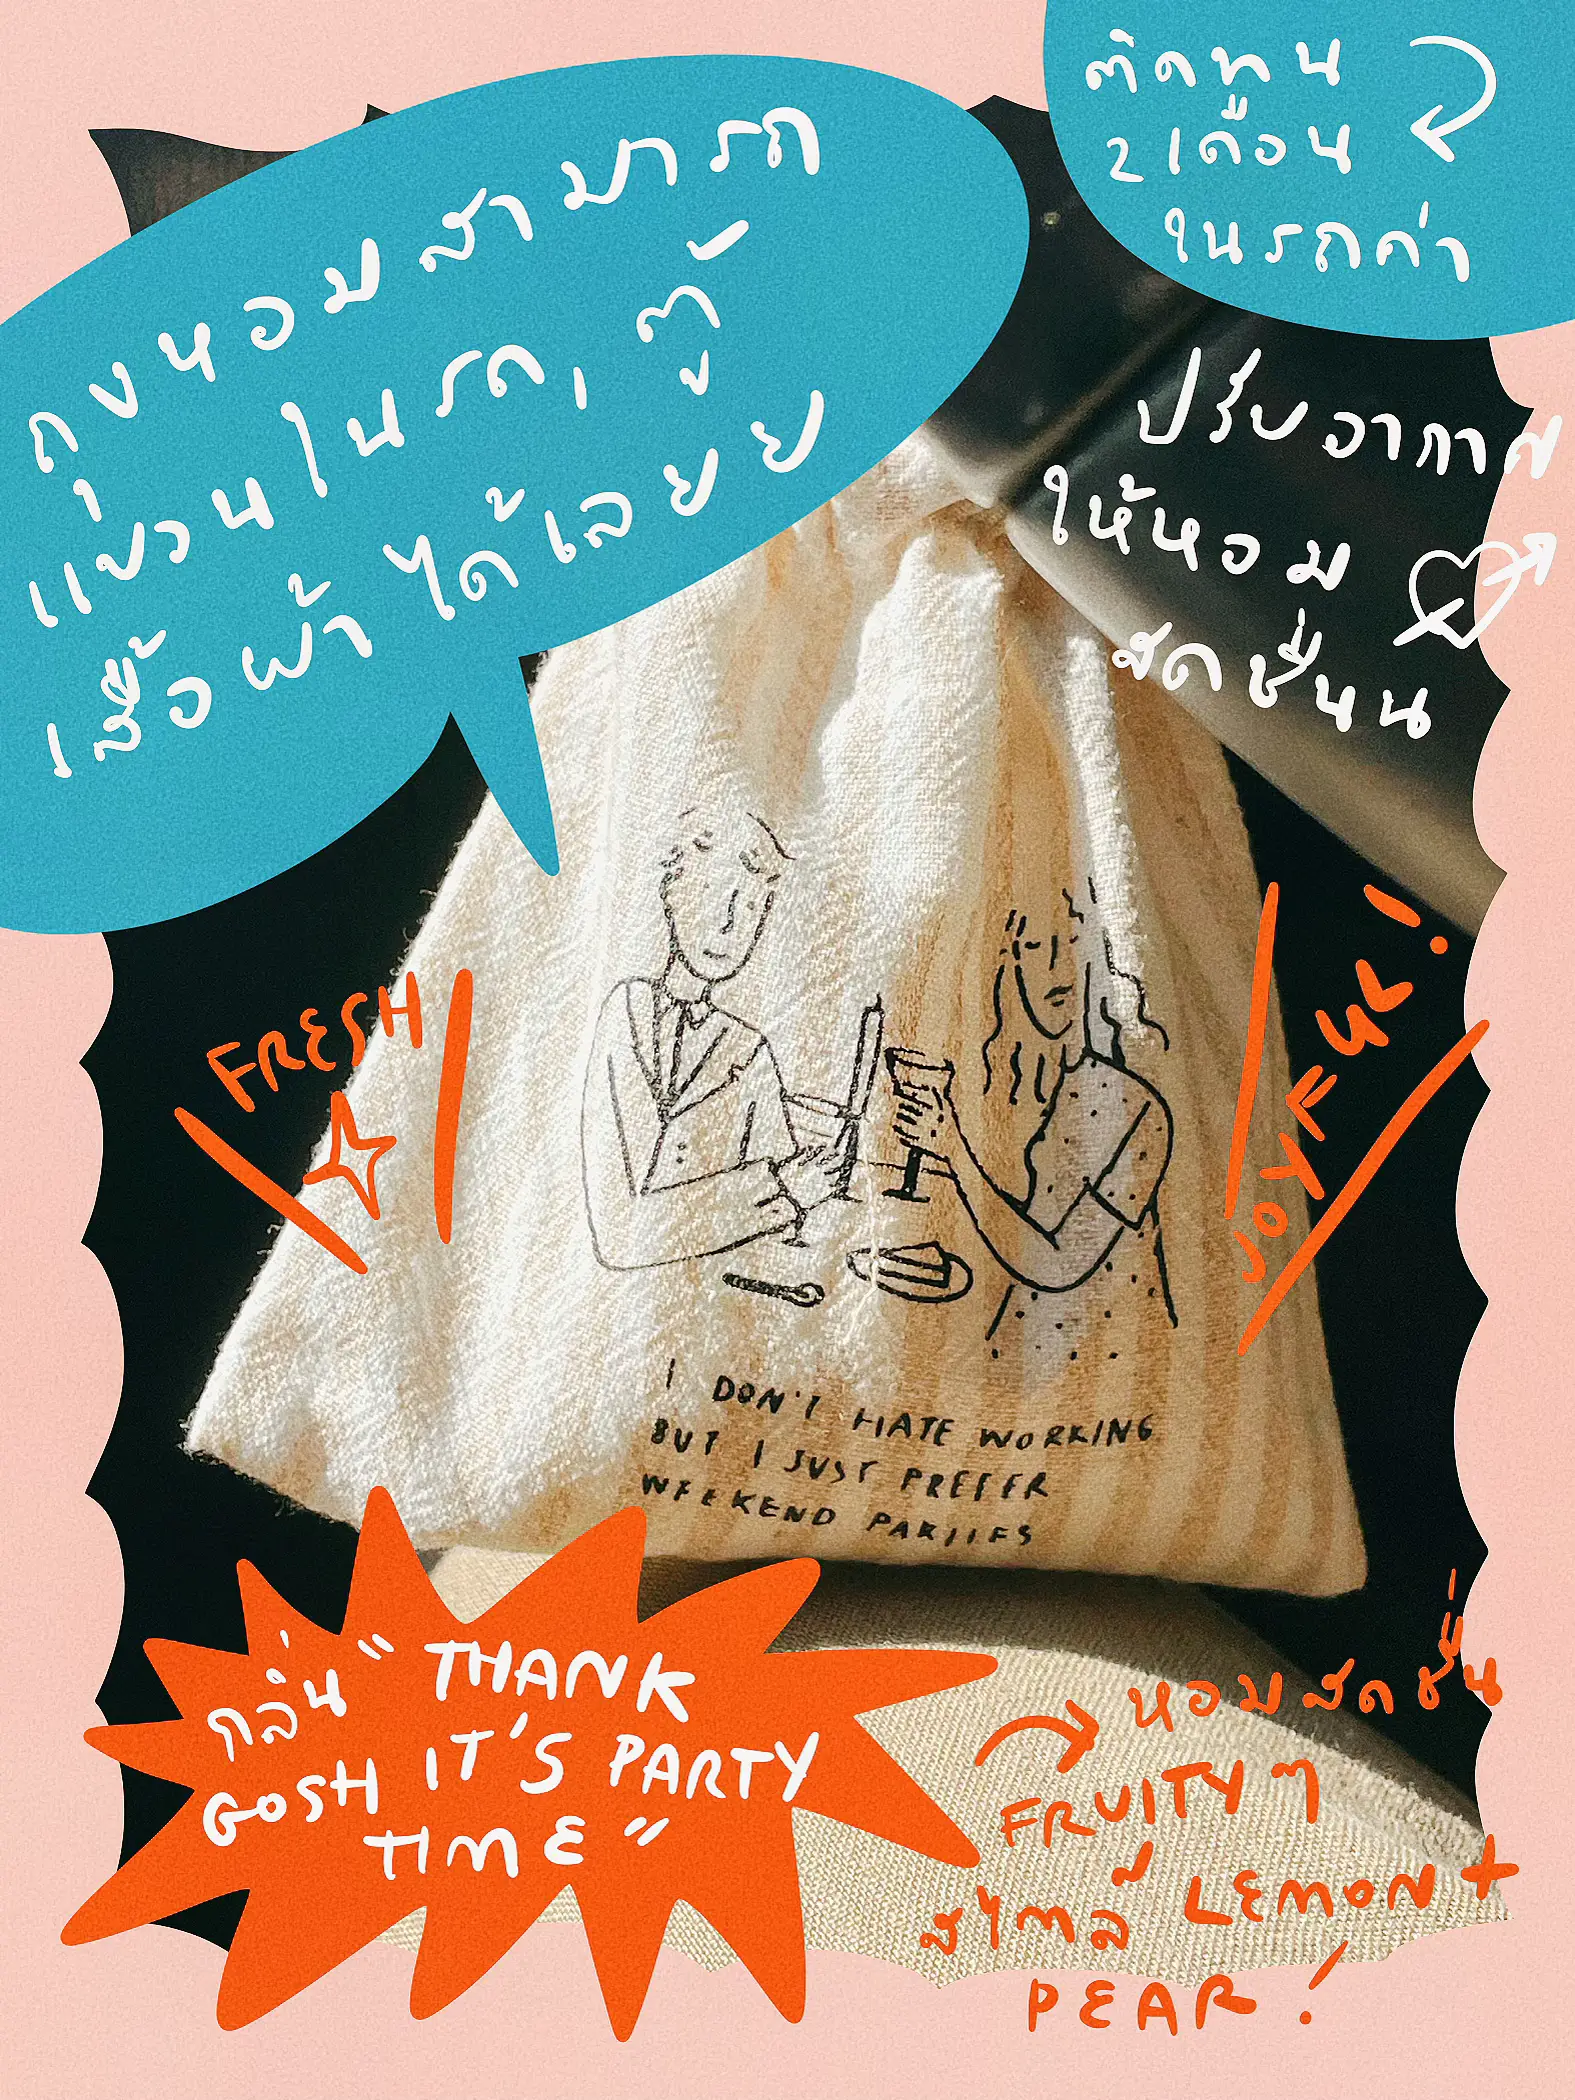 ถุงหอมสามารถ
แขวนในรถ, ตู้
เสื้อผ้าได้เลยย
ติดทน
2 เดือน
ในรถค่า
ปรับอากาศ
ให้หอม
สดชื่นน
FRESH
JOYFUL!
I DON'T HATE WORKING
BUT I JUST PREFER
WEEKEND PARTIES
กลิ่น "THANK
GOSH IT'S PARTY
TIME"
หอมสดชื่น
FRUITY ๆ
สไตล์ LEMON +
PEAR!